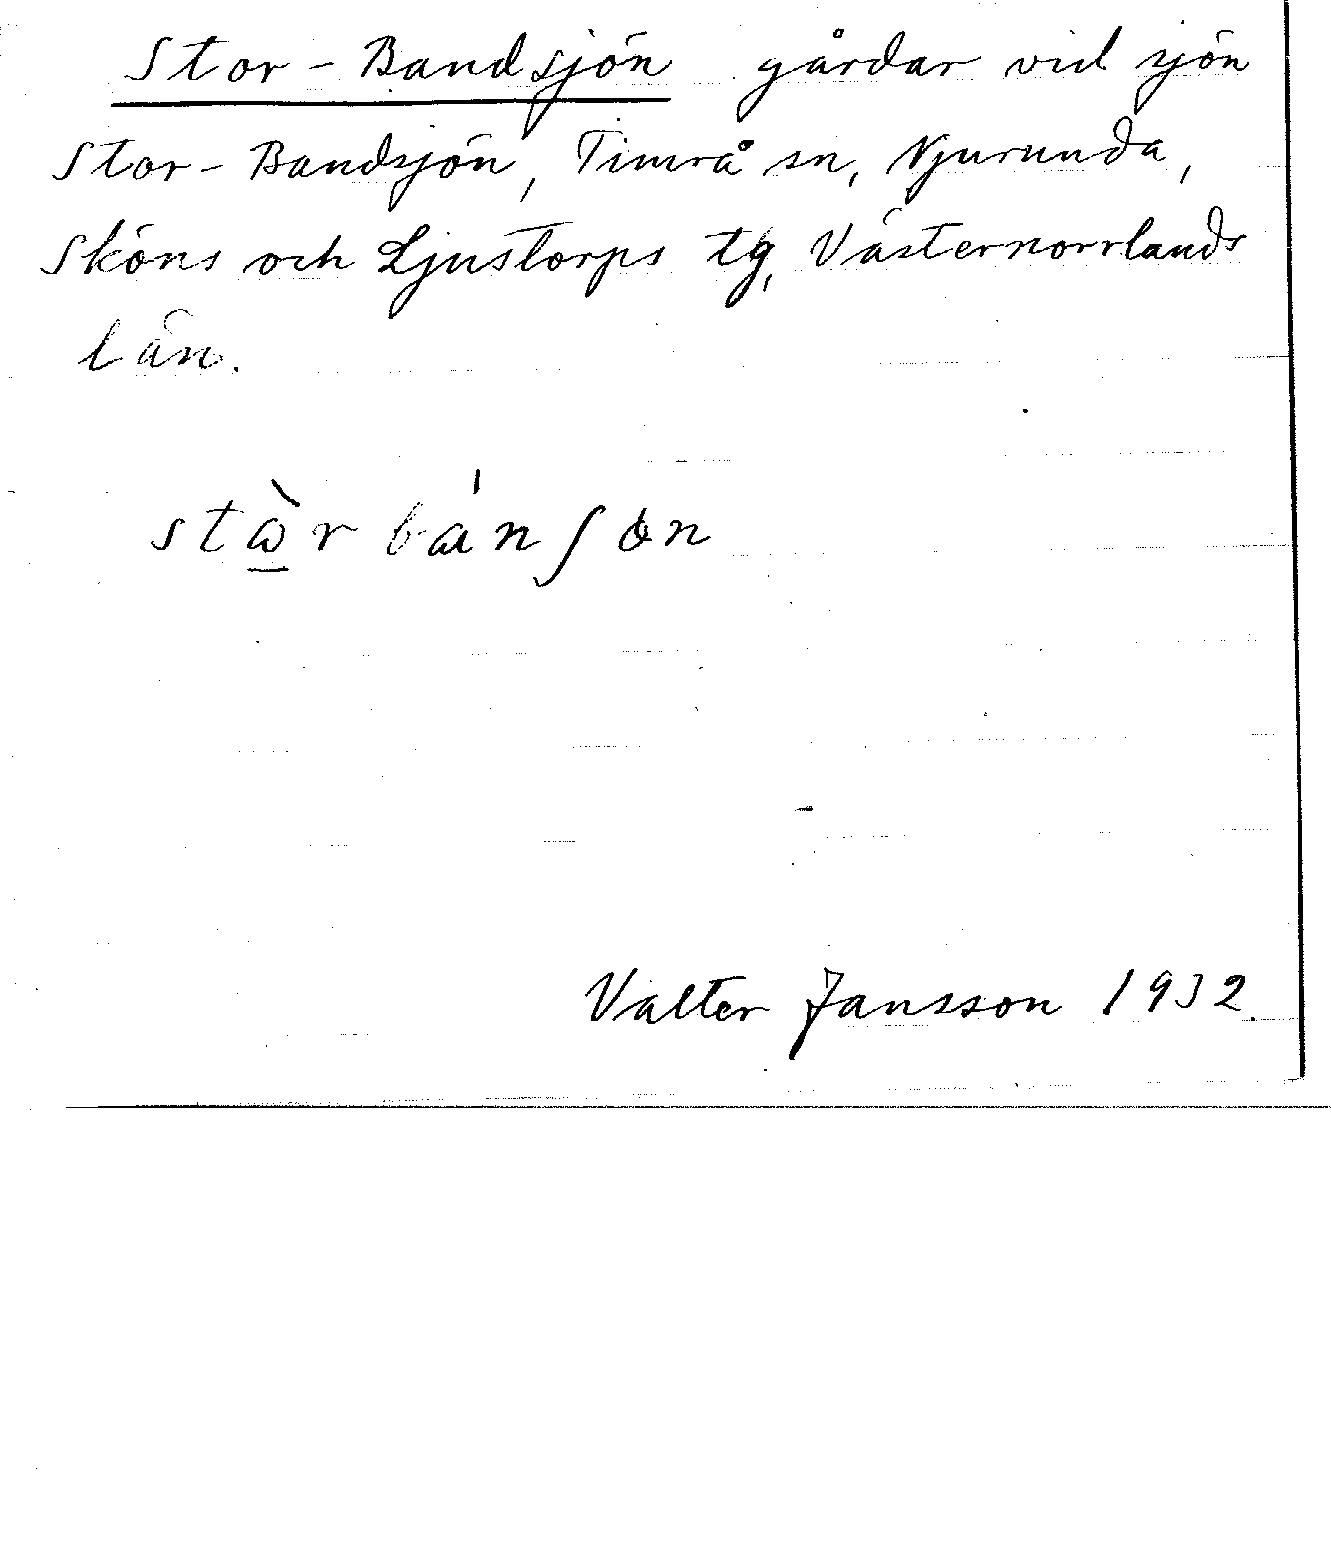 Stor-Bandsjön gårdar vid sjön
Stor-Bandsjön, Timrå sn, Njurunda,
Sköns och Ljustorps tg, Västernorrlands
län.
stὼrbánʃөn
Valter Jansson 1932.